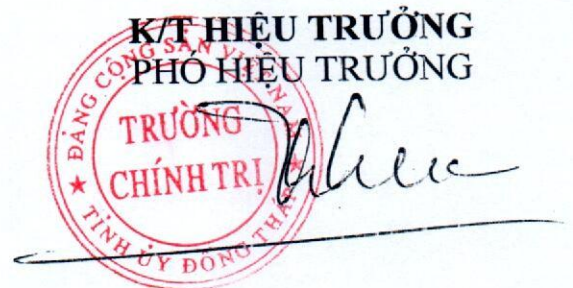 K/T HIỆU TRƯỞNG
PHÓ HIỆU TRƯỞNG
ĐẢNG CỘNG SẢN VIỆT NAM
TRƯỜNG
CHÍNH TRỊ
★ TỈNH ỦY ĐỒNG THÁP ★